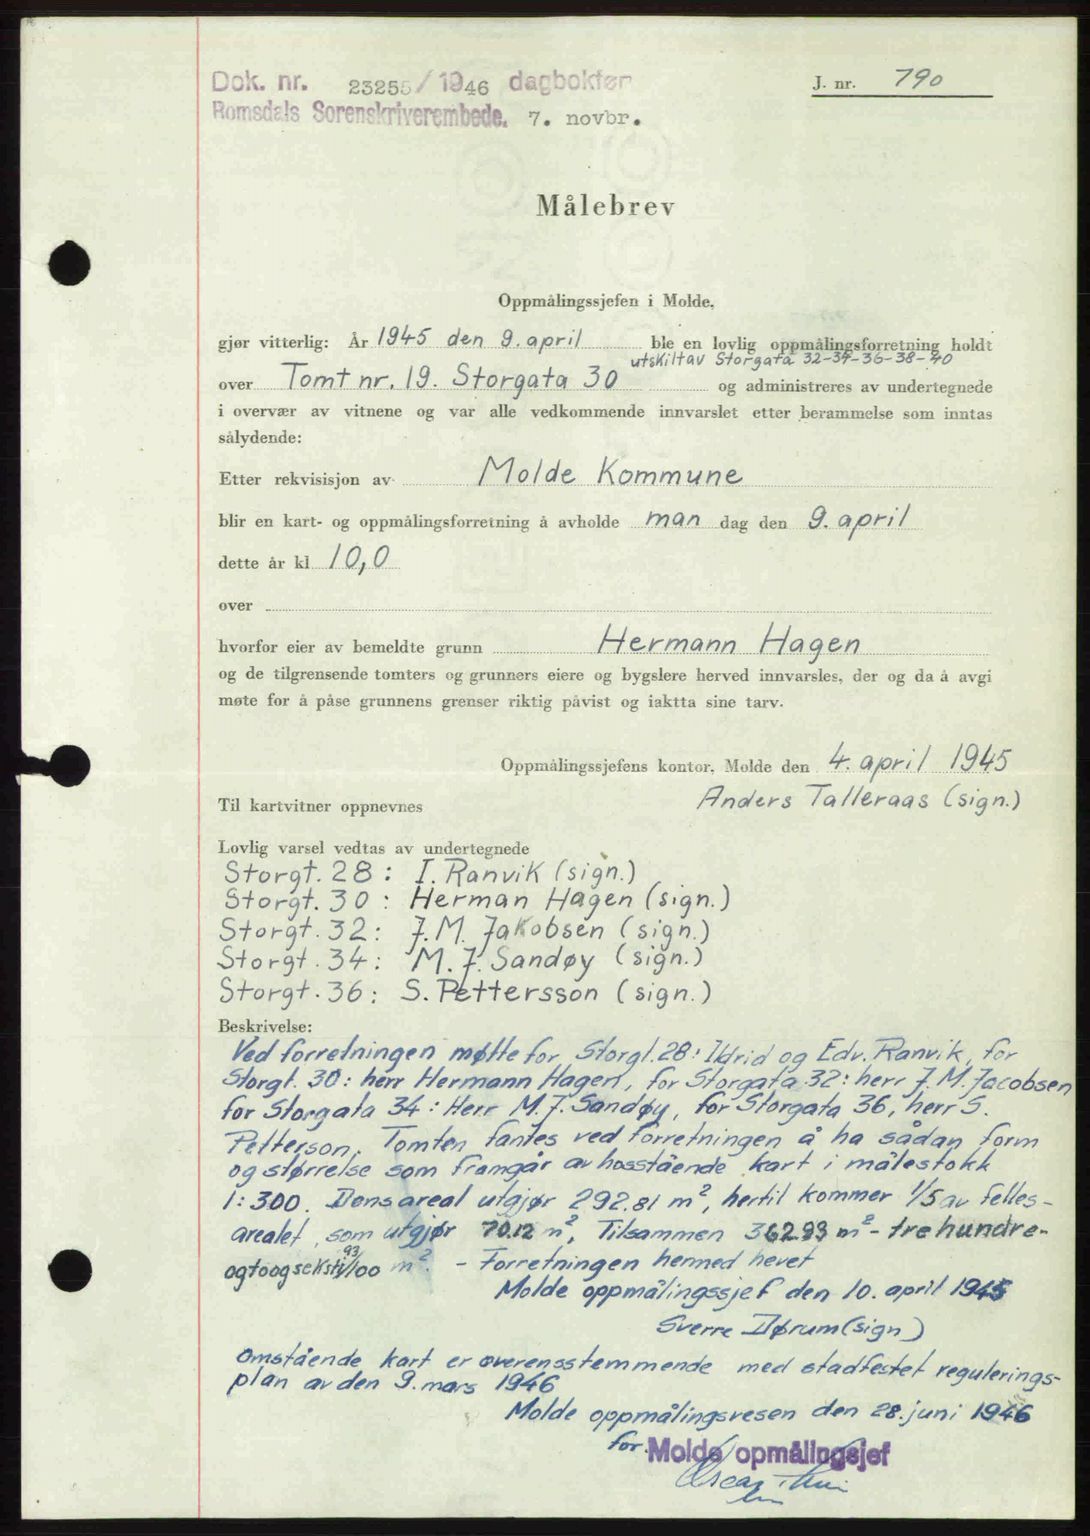 Dok. nr. 23255/1946 dagbokfør
J. nr. 790
Romsdals Sorenskriverembede. 7. novbr.
Målebrev
Oppmålingssjefen i Molde,
gjør vitterlig: År 1945 den 9. april ble en lovlig oppmålingsforretning holdt
utskilt av Storgata 32-34-36-38-40
over Tomt nr. 19. Storgata 30 og administreres av undertegnede
i overvær av vitnene og var alle vedkommende innvarslet etter berammelse som inntas
sålydende:
Etter rekvisisjon av Molde Kommune
blir en kart- og oppmålingsforretning å avholde man dag den 9. april
dette år kl 10,0
over
hvorfor eier av bemeldte grunn Hermann Hagen
og de tilgrensende tomters og grunners eiere og bygslere herved innvarsles, der og da å avgi
møte for å påse grunnens grenser riktig påvist og iaktta sine tarv.
Oppmålingssjefens kontor, Molde den 4. april 1945
Anders Talleraas (sign.)
Til kartvitner oppnevnes
Lovlig varsel vedtas av undertegnede
Storgt. 28: I. Ranvik (sign.)
Storgt. 30: Herman Hagen (sign.)
Storgt. 32: J. M. Jakobsen (sign.)
Storgt. 34: M. J. Sandøy (sign.)
Storgt. 36: S. Pettersson (sign.)
Beskrivelse:
Ved forretningen møtte for Storgt. 28: Ildrid og Edv. Ranvik, for
Storgt. 30: herr Hermann Hagen, for Storgata 32: herr J. M. Jacobsen
for Storgata 34: Herr M. J. Sandøy, for Storgata 36, herr S.
Petterson. Tomten fantes ved forretningen å ha sådan form
og størrelse som framgår av hosstående kart i målestokk
1:300. Dens areal utgjør 292.81 m², hertil kommer 1/5 av felles-
arealet, som utgjør 70.12 m², Tilsammen 362.93 m² - tre hundre-
ogtoogseksti 93/100 m². - Forretningen hermed hevet
Molde oppmålingssjef den 10. april 1945
Sverre Dørum (sign)
Omstående kart er overensstemmende med stadfestet regulerings-
plan av den 9. mars 1946
Molde oppmålingsvesen den 28. juni 1946
for. Molde opmålingsjef
Oscar